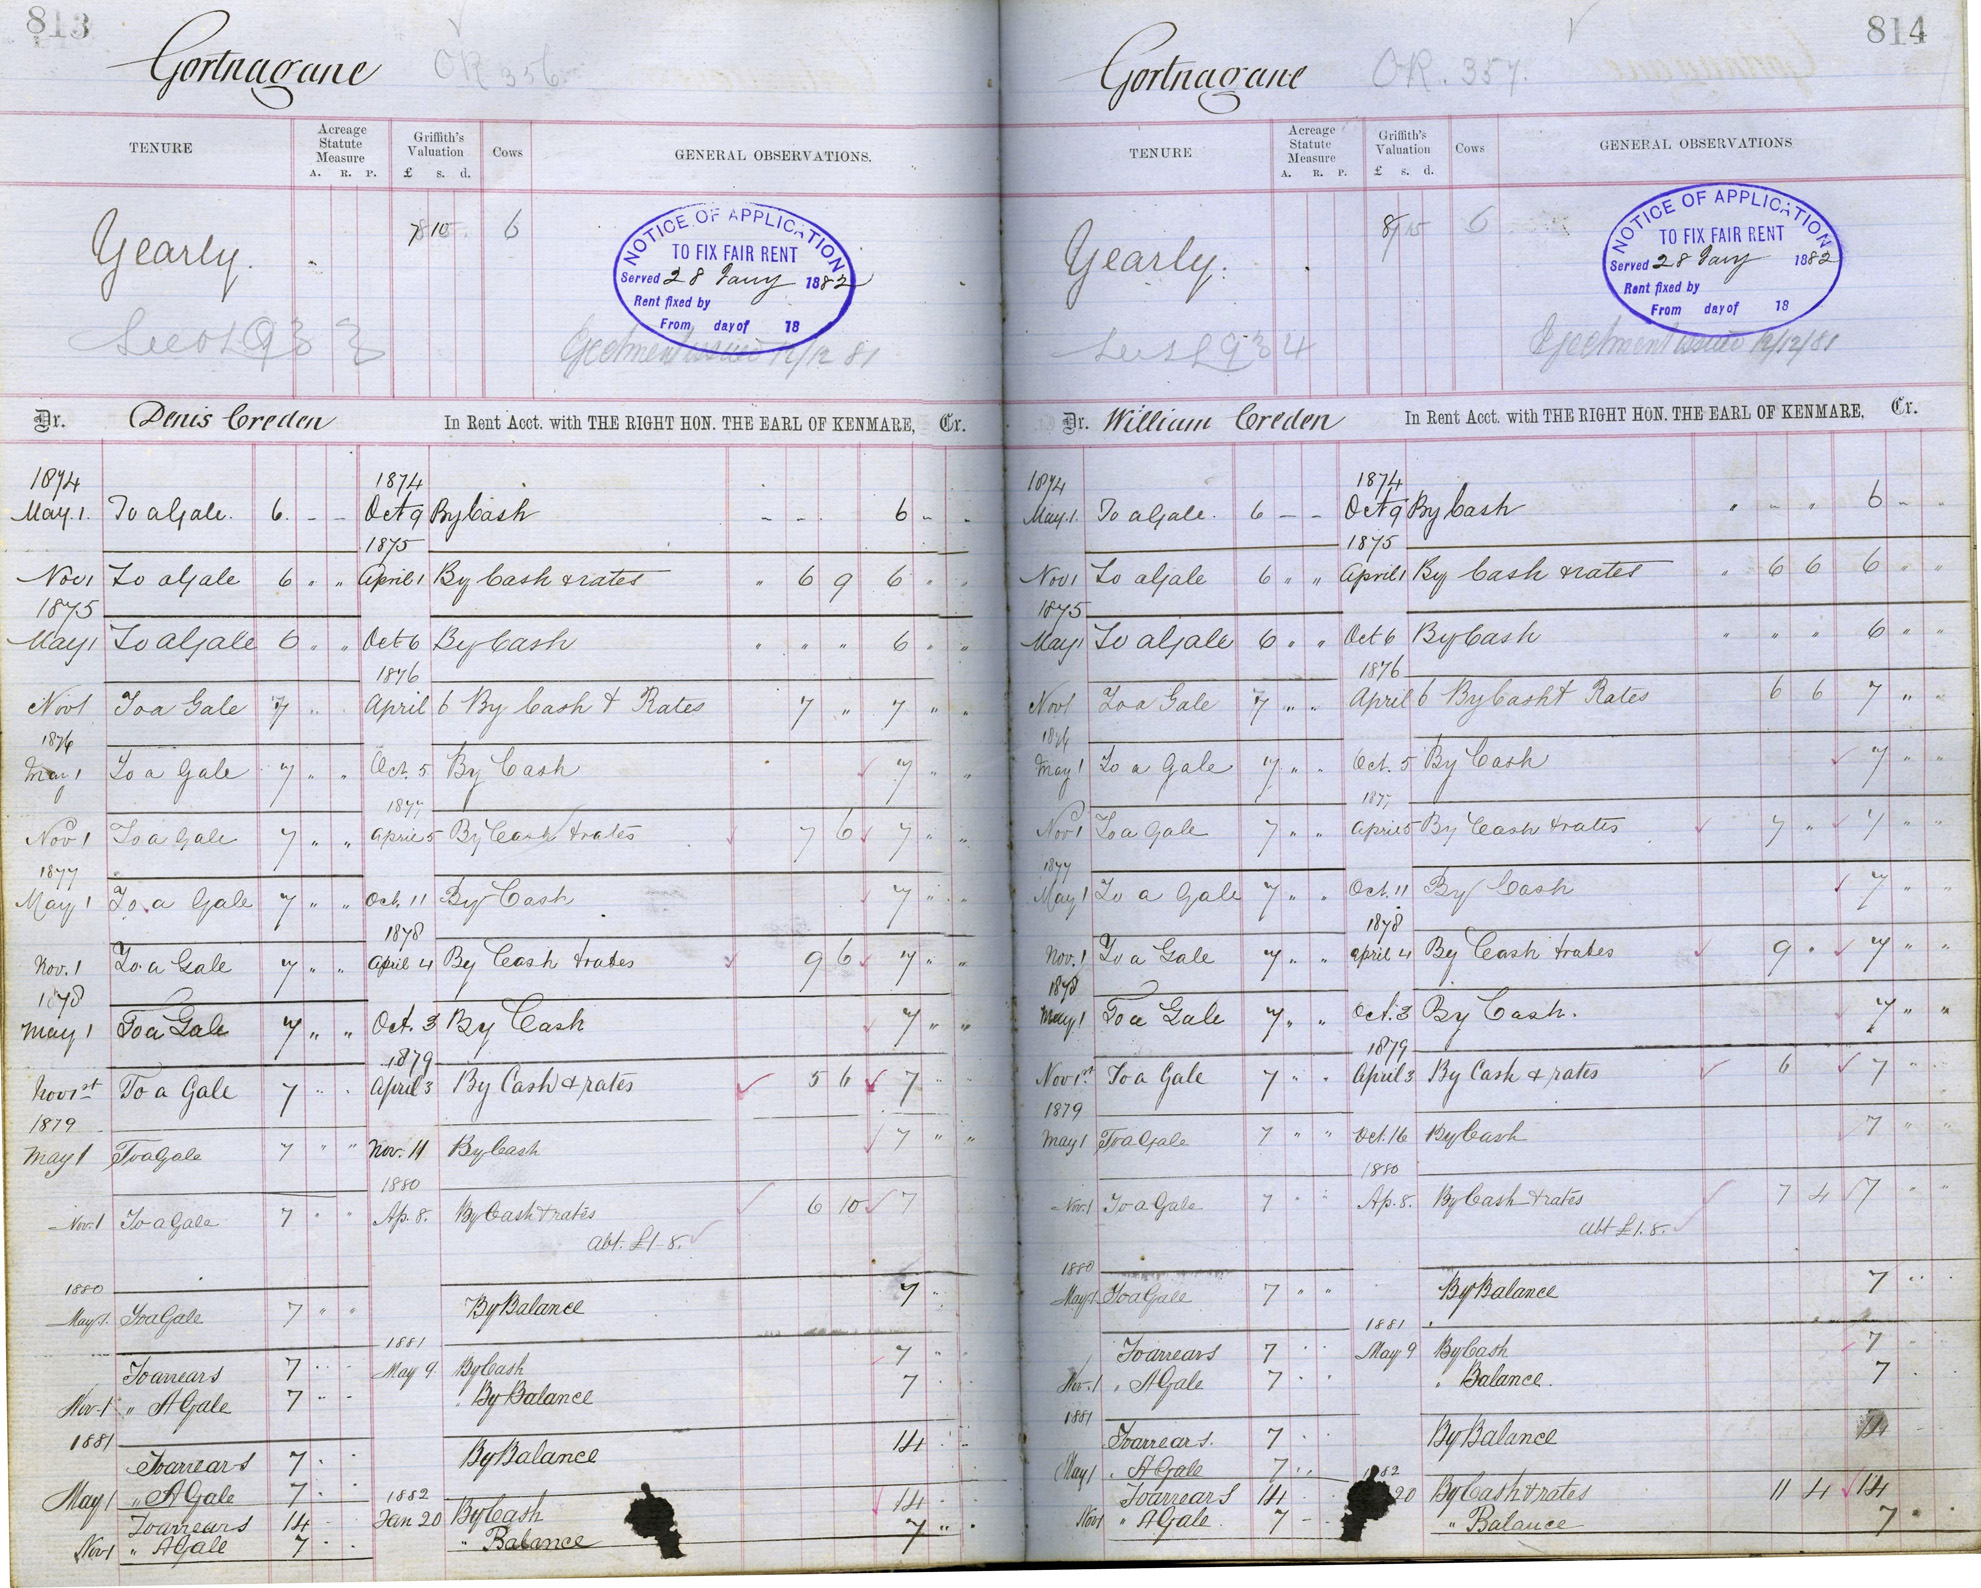 813
Gortnagane OR 356
TENURE
Acreage Statute Measure
A. R. P.
Griffith's Valuation
£ s. d.
Cows
GENERAL OBSERVATIONS.
Yearly.
6
NOTICE OF APPLICATION
TO FIX FAIR RENT
Served 28 Jany 1882
Rent fixed by
From day of 18
Ejectment issued 12/12 81
Dr. Denis Creden In Rent Acct. with THE RIGHT HON. THE EARL OF KENMARE, Cr.
1874 1874
May 1. To a Gale. 6. - - Oct 9 By Cash - - 6 - -
1875
Nov 1 To a Gale 6 " " April 1 By Cash & rates " 6 9 6 " "
1875
May 1 To a Gale 6 " " Oct 6 By Cash " " " 6 " "
1876
Nov 1 To a Gale 7 " " April 6 By Cash & Rates 7 " 7 " "
1876
May 1 To a Gale 7 " " Oct. 5 By Cash 7 " "
1877
Nov 1 To a Gale 7 " " April 5 By Cash & rates 7 6 7 " "
1877
May 1 To a Gale 7 " " Oct. 11 By Cash 7 " "
1878
Nov. 1 To a Gale 7 " " April 4 By Cash & rates 9 6 7 " "
1878
May 1 To a Gale 7 " " Oct. 3 By Cash 7 " "
1879
Nov 1st To a Gale 7 " " April 3 By Cash & rates 5 6 7 " "
1879
May 1 To a Gale 7 " " Nov. 11 By Cash 7 " "
1880
Nov. 1 To a Gale 7 " " Ap. 8. By Cash & rates 6 10 7
abt. £1-8.
1880
May 1. To a Gale 7 " " By Balance 7 "
1881
To arrears 7 " " May 9. By Cash 7 " "
Nov. 1 " A Gale 7 " " By Balance 7 "
1881
To arrears 7 " " By Balance 14 " "
May 1 " A Gale 7 " "
1882
To arrears 14 - Jan 20 By Cash 14 "
Nov 1 " A Gale 7 " " " Balance 7 " "
814
Gortnagane OR. 357.
TENURE
Acreage Statute Measure
A. R. P.
Griffith's Valuation
£ s. d.
Cows
GENERAL OBSERVATIONS
Yearly.
8 15 6
NOTICE OF APPLICATION
TO FIX FAIR RENT
Served 28 Jany 1882
Rent fixed by
From day of 18
934
Ejectment issued 12/12/81
Dr. William Creden In Rent Acct. with THE RIGHT HON. THE EARL OF KENMARE, Cr.
1874 1874
May 1. To a Gale. 6 - - Oct 9 By Cash " - " 6 - "
1875
Nov 1 To a Gale 6 " " April 1 By Cash & rates " 6 6 6 " "
1875
May 1 To a Gale 6 " " Oct 6 By Cash " " " 6 " "
1876
Nov 1 To a Gale 7 " " April 6 By Cash & Rates 6 6 7 " "
1876
May 1 To a Gale 7 " " Oct. 5 By Cash 7 " "
1877
Nov 1 To a Gale 7 " " April 5 By Cash & rates 7 " 7 " "
1877
May 1 To a Gale 7 " " Oct. 11 By Cash 7 " "
1878
Nov. 1 To a Gale 7 " " April 4 By Cash & rates 9 " 7 " "
1878
May 1 To a Gale 7 " " Oct. 3 By Cash. 7 " "
1879
Nov 1st To a Gale 7 " " April 3 By Cash & rates 6 7 " "
1879
May 1 To a Gale 7 " " Oct. 16 By Cash 7 " "
1880
Nov. 1 To a Gale 7 " " Ap. 8. By Cash & rates 7 4 7 " "
abt £1.8.
1880
May 1. To a Gale 7 " " By Balance 7 " "
1881
To arrears 7 " " May 9 By Cash 7 "
Nov. 1 " A Gale 7 " " " Balance. 7 "
1881
To arrears. 7 " By Balance 14
May 1 " A Gale 7 " "
82
To arrears 14 - 20 By Cash & rates 11 4 14
Nov 1 " A Gale. 7 - " Balance 7 "